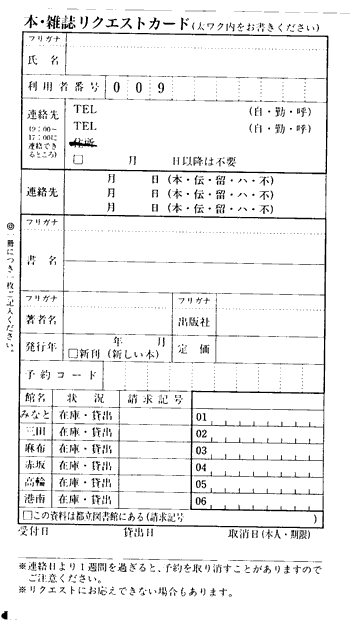 本・雑誌リクエストカード(太ワク内をお書きください)
フリガナ
氏名
利用者番号 0 0 9
連絡先 TEL (自・勤・呼)
TEL (自・勤・呼)
住所
□ 月 日以降は不要
連絡先 月 日 (本・伝・留・ハ・不)
月 日 (本・伝・留・ハ・不)
月 日 (本・伝・留・ハ・不)
フリガナ
書名
フリガナ フリガナ
著者名 出版社
発行年 年 月 定価
□新刊(新しい本)
予約コード
館名 状況 請求記号
みなと 在庫・貸出 01
三田 在庫・貸出 02
麻布 在庫・貸出 03
赤坂 在庫・貸出 04
高輪 在庫・貸出 05
港南 在庫・貸出 06
□この資料は都立図書館にある(請求記号 )
受付日 貸出日 取消日(本人・期限)
※連絡日より1週間を過ぎると、予約を取り消すことがありますので
ご注意ください。
※リクエストにお応えできない場合もあります。
◎一冊につき一枚ご記入ください。